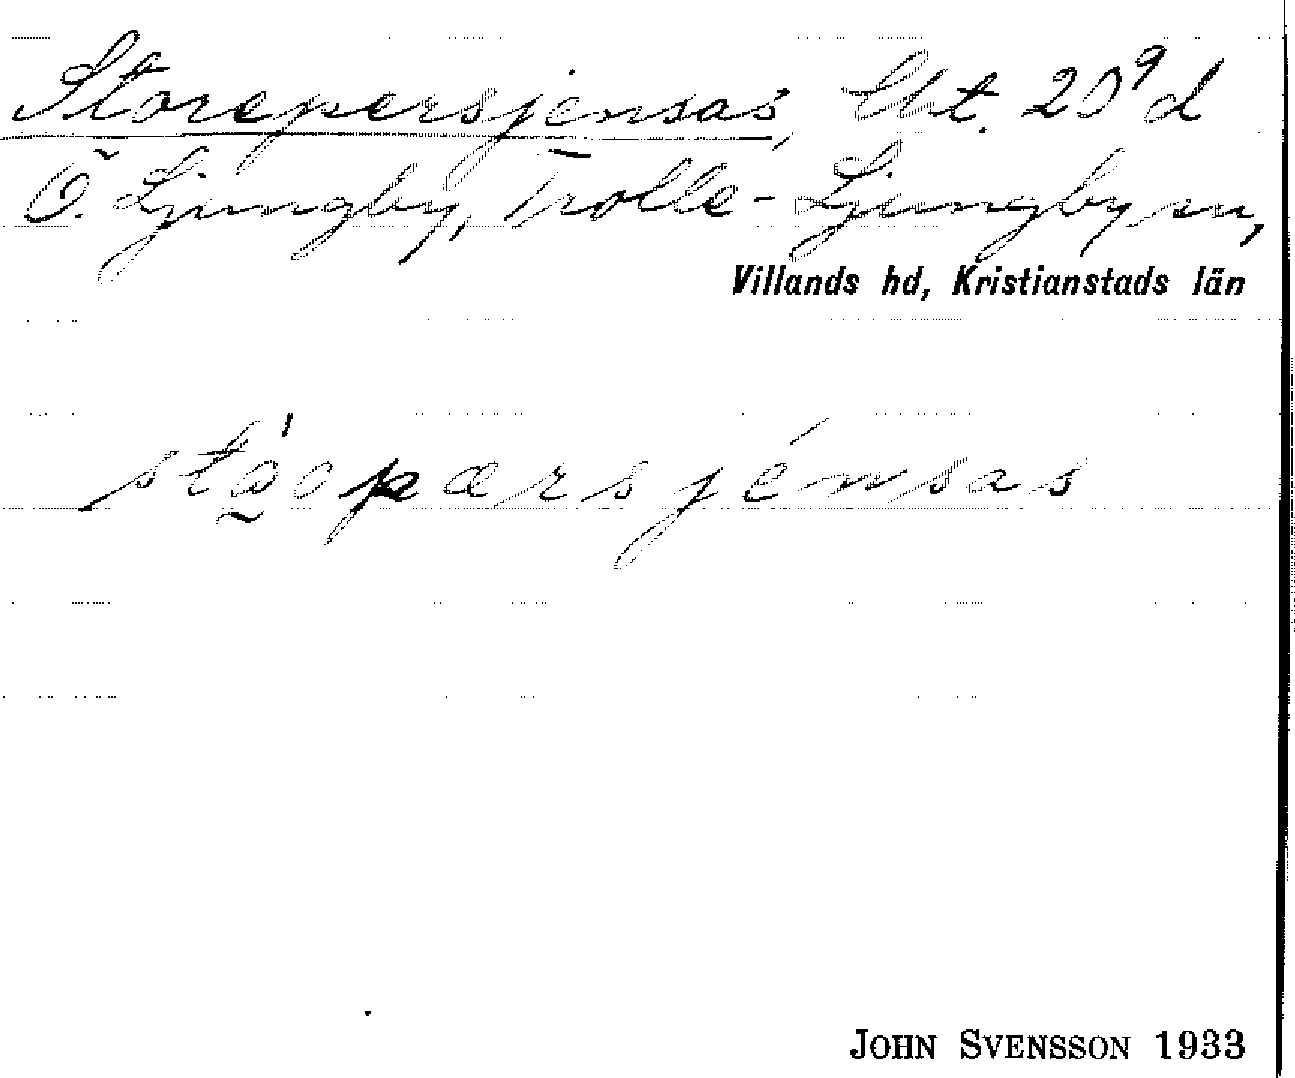 Storepersjensas, Ut. 20⁹d
Ö. Ljungby, Trolle-Ljungby sn,
Villands hd, Kristianstads län
JOHN SVENSSON 1933